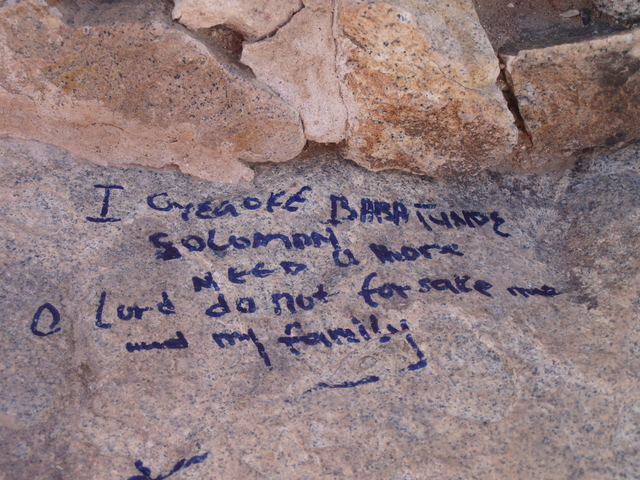 I OYEGOKE BABATUNDE
SOLOMON
NEED U MORE
O Lord do not forsake me
and my family